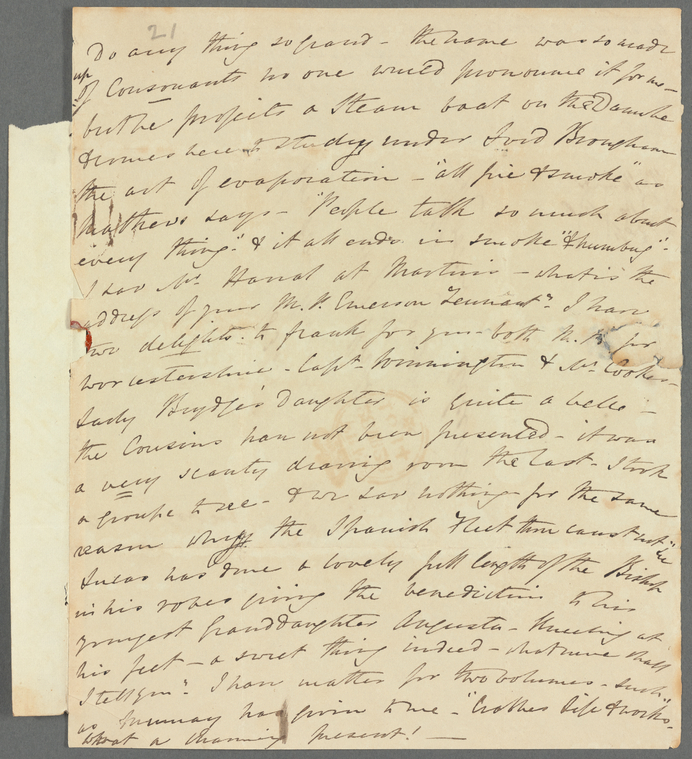 21
Do any thing so grand - the name was so made
up
of Consonants no one would pronounce it for me -
but he projects a Steam boat on the Danube
& comes here to study under Lord Brougham
the art of evaporation - "all fire & smoke" as
Mathews says - "People talk so much about
every thing" & it all ends in smoke "& humbug" -
I saw Mr. Harral at Martin's - what is the
address of your M.P. Emerson Tennant? I have
two delights to frank for you both M.P.s for
Worcestershire - Capt. Winnington & Mr. Cookes -
Lady Brydges Daughter is quite a belle -
the Cousins have not been presented - it was
a very scanty drawing room the last - I took
a groupe to see - & we saw nothing for the same
reason why the Spanish Fleet thou canst not "see
Lucas has done a lovely full length of the Bishop
in his robes giving the benediction to his
youngest Granddaughter Augusta - Kneeling at
his feet - a sweet thing indeed - what more shall
I tell you? I have matter for two volumes - such
as Murray has given to me - "Crabbes Life & works -
What a charming present! -